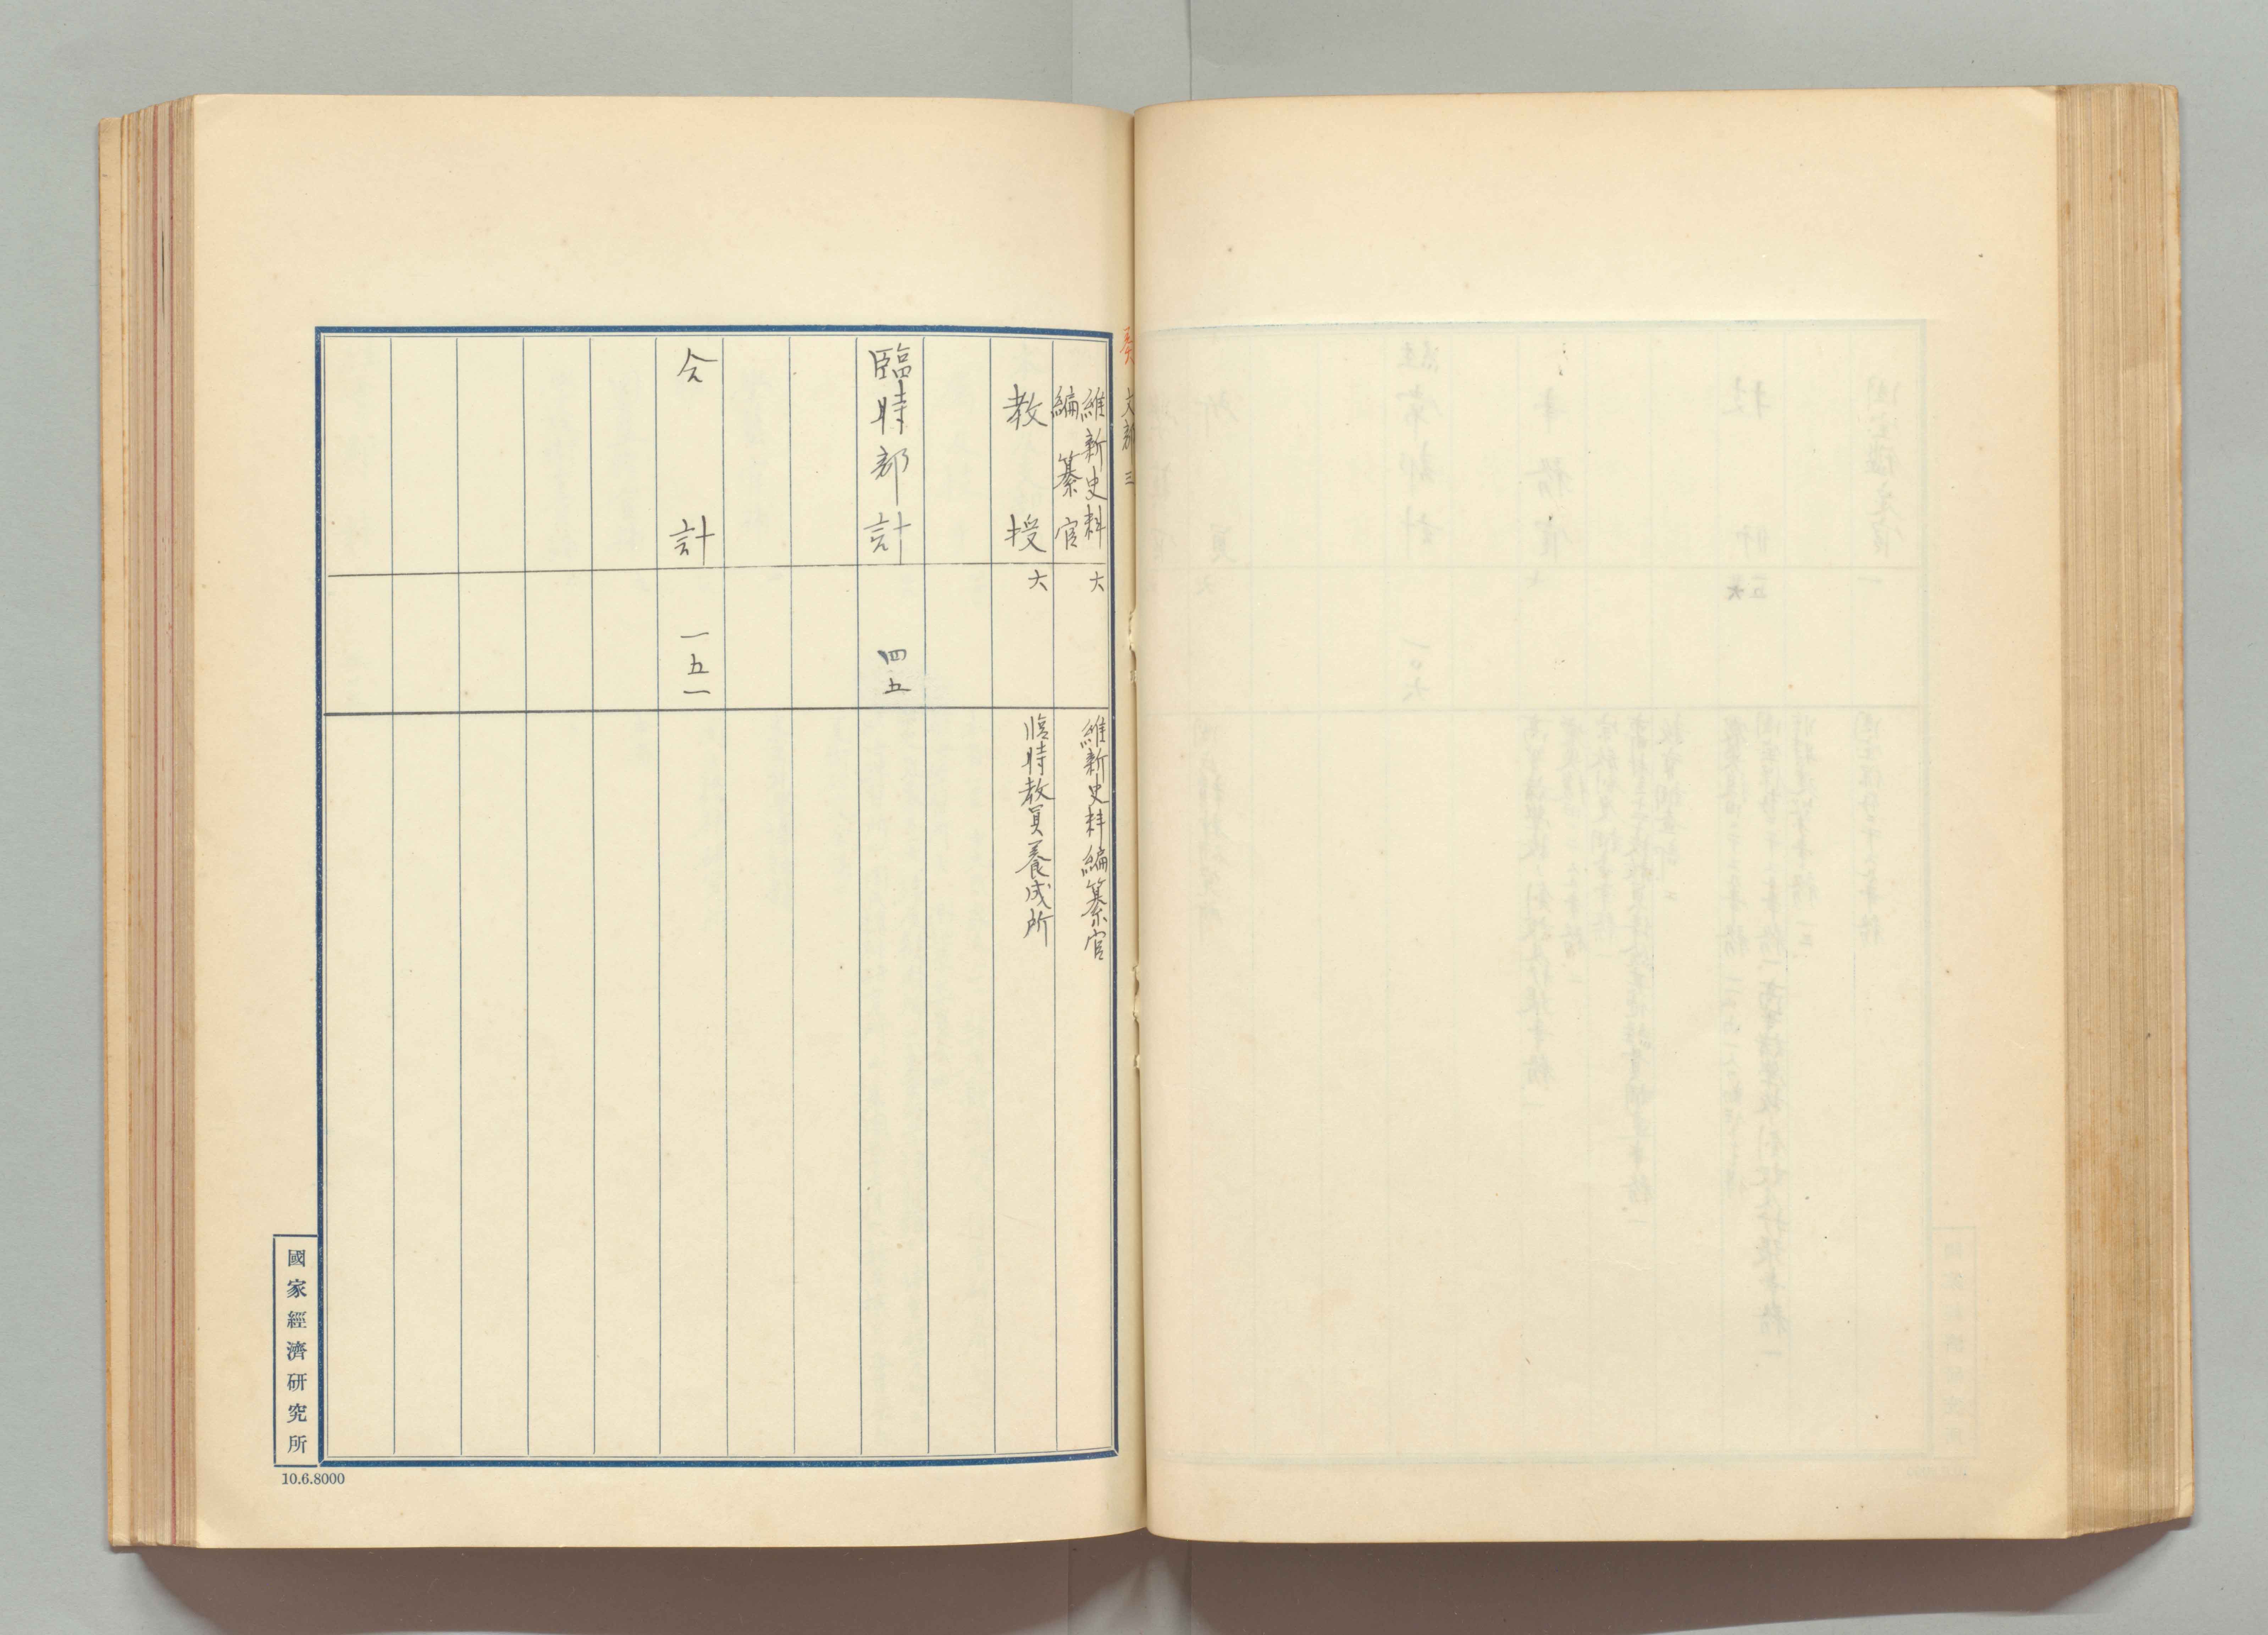 奏 文部 三
維新史料
編纂官
六
維新史料編纂官
教授
六
臨時教員養成所
臨時部計
四五
合計
一五一
國家經濟研究所
10.6.8000